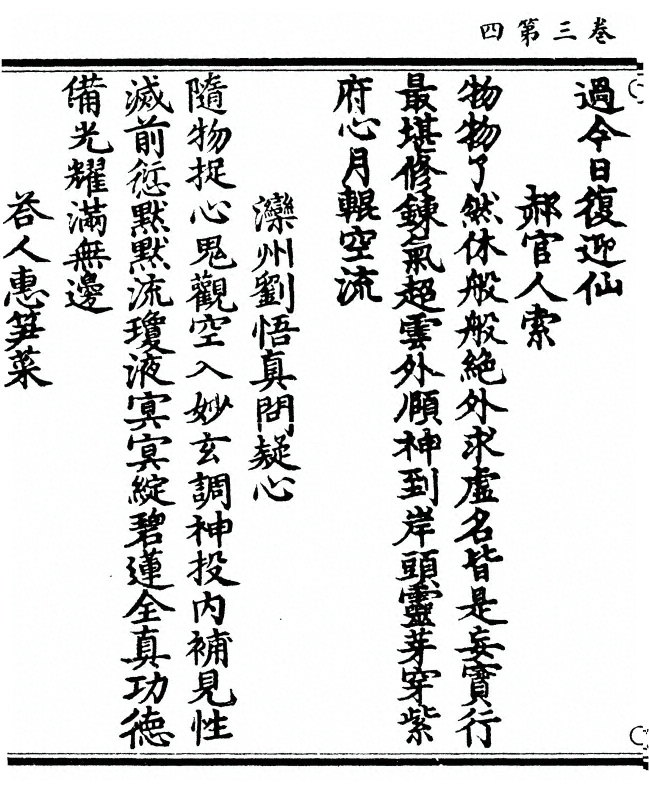 卷三第四
過今日復迎仙
郝官人索
物物了然休般般絶外求虛名皆是妄寳行
最堪修鍊氣超雲外頤神到岸頭靈芽穿紫
府心月輥空流
灤州劉悟真問疑心
隨物捉心鬼觀空入妙玄調神投內補見性
滅前愆默默流瓊液㝠㝠綻碧蓮全真功德
備光耀滿無邊
荅人惠笋菜